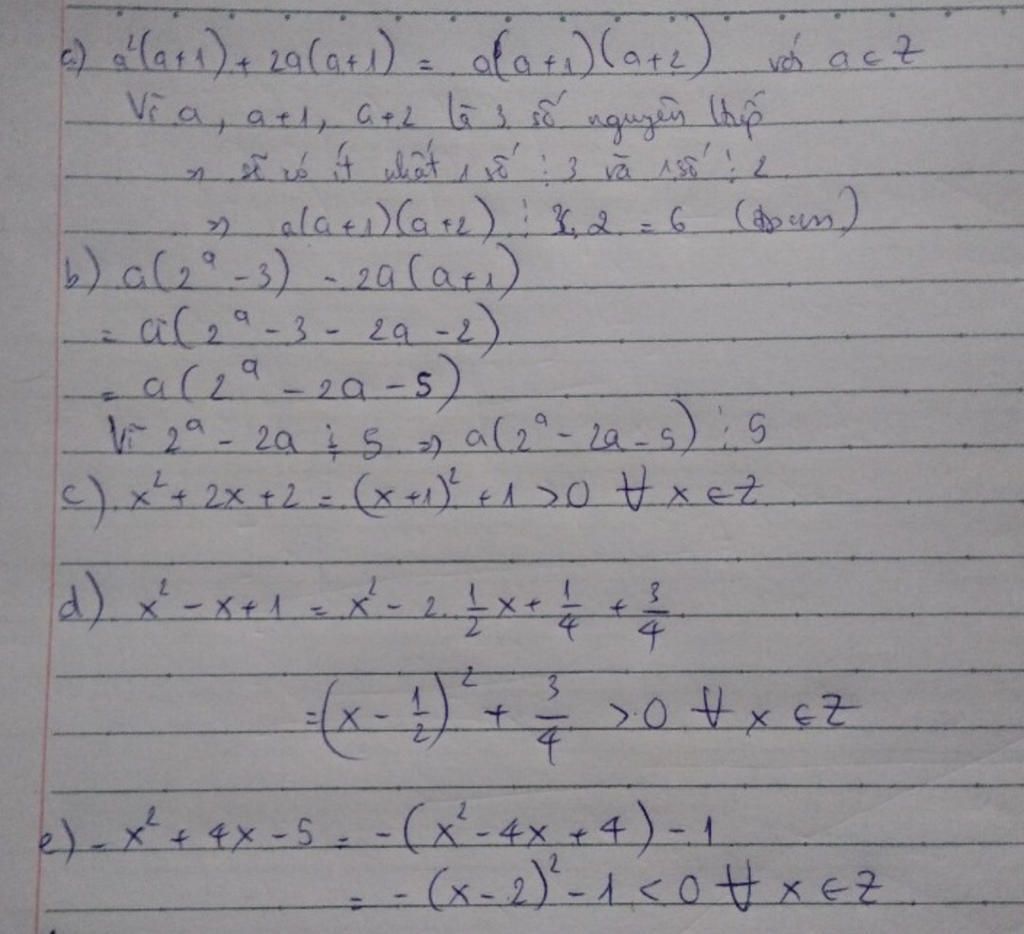 a) a²(a+1) + 2a(a+1) = a(a+1)(a+2) với a ∈ Z
Vì a, a+1, a+2 là 3 số nguyên ltiếp
=> sẽ có ít nhất 1 số ⋮ 3 và 1 số ⋮ 2
=> a(a+1)(a+2) ⋮ 3.2 = 6 (đpcm)
b) a(2^a - 3) - 2a(a+1)
= a(2^a - 3 - 2a - 2)
= a(2^a - 2a - 5)
Vì 2^a - 2a ⋮ 5 => a(2^a - 2a - 5) ⋮ 5
c) x² + 2x + 2 = (x+1)² + 1 > 0 ∀ x ∈ Z
d) x² - x + 1 = x² - 2. 1/2 x + 1/4 + 3/4
= (x - 1/2)² + 3/4 > 0 ∀ x ∈ Z
e) - x² + 4x - 5 = - (x² - 4x + 4) - 1
= - (x - 2)² - 1 < 0 ∀ x ∈ Z